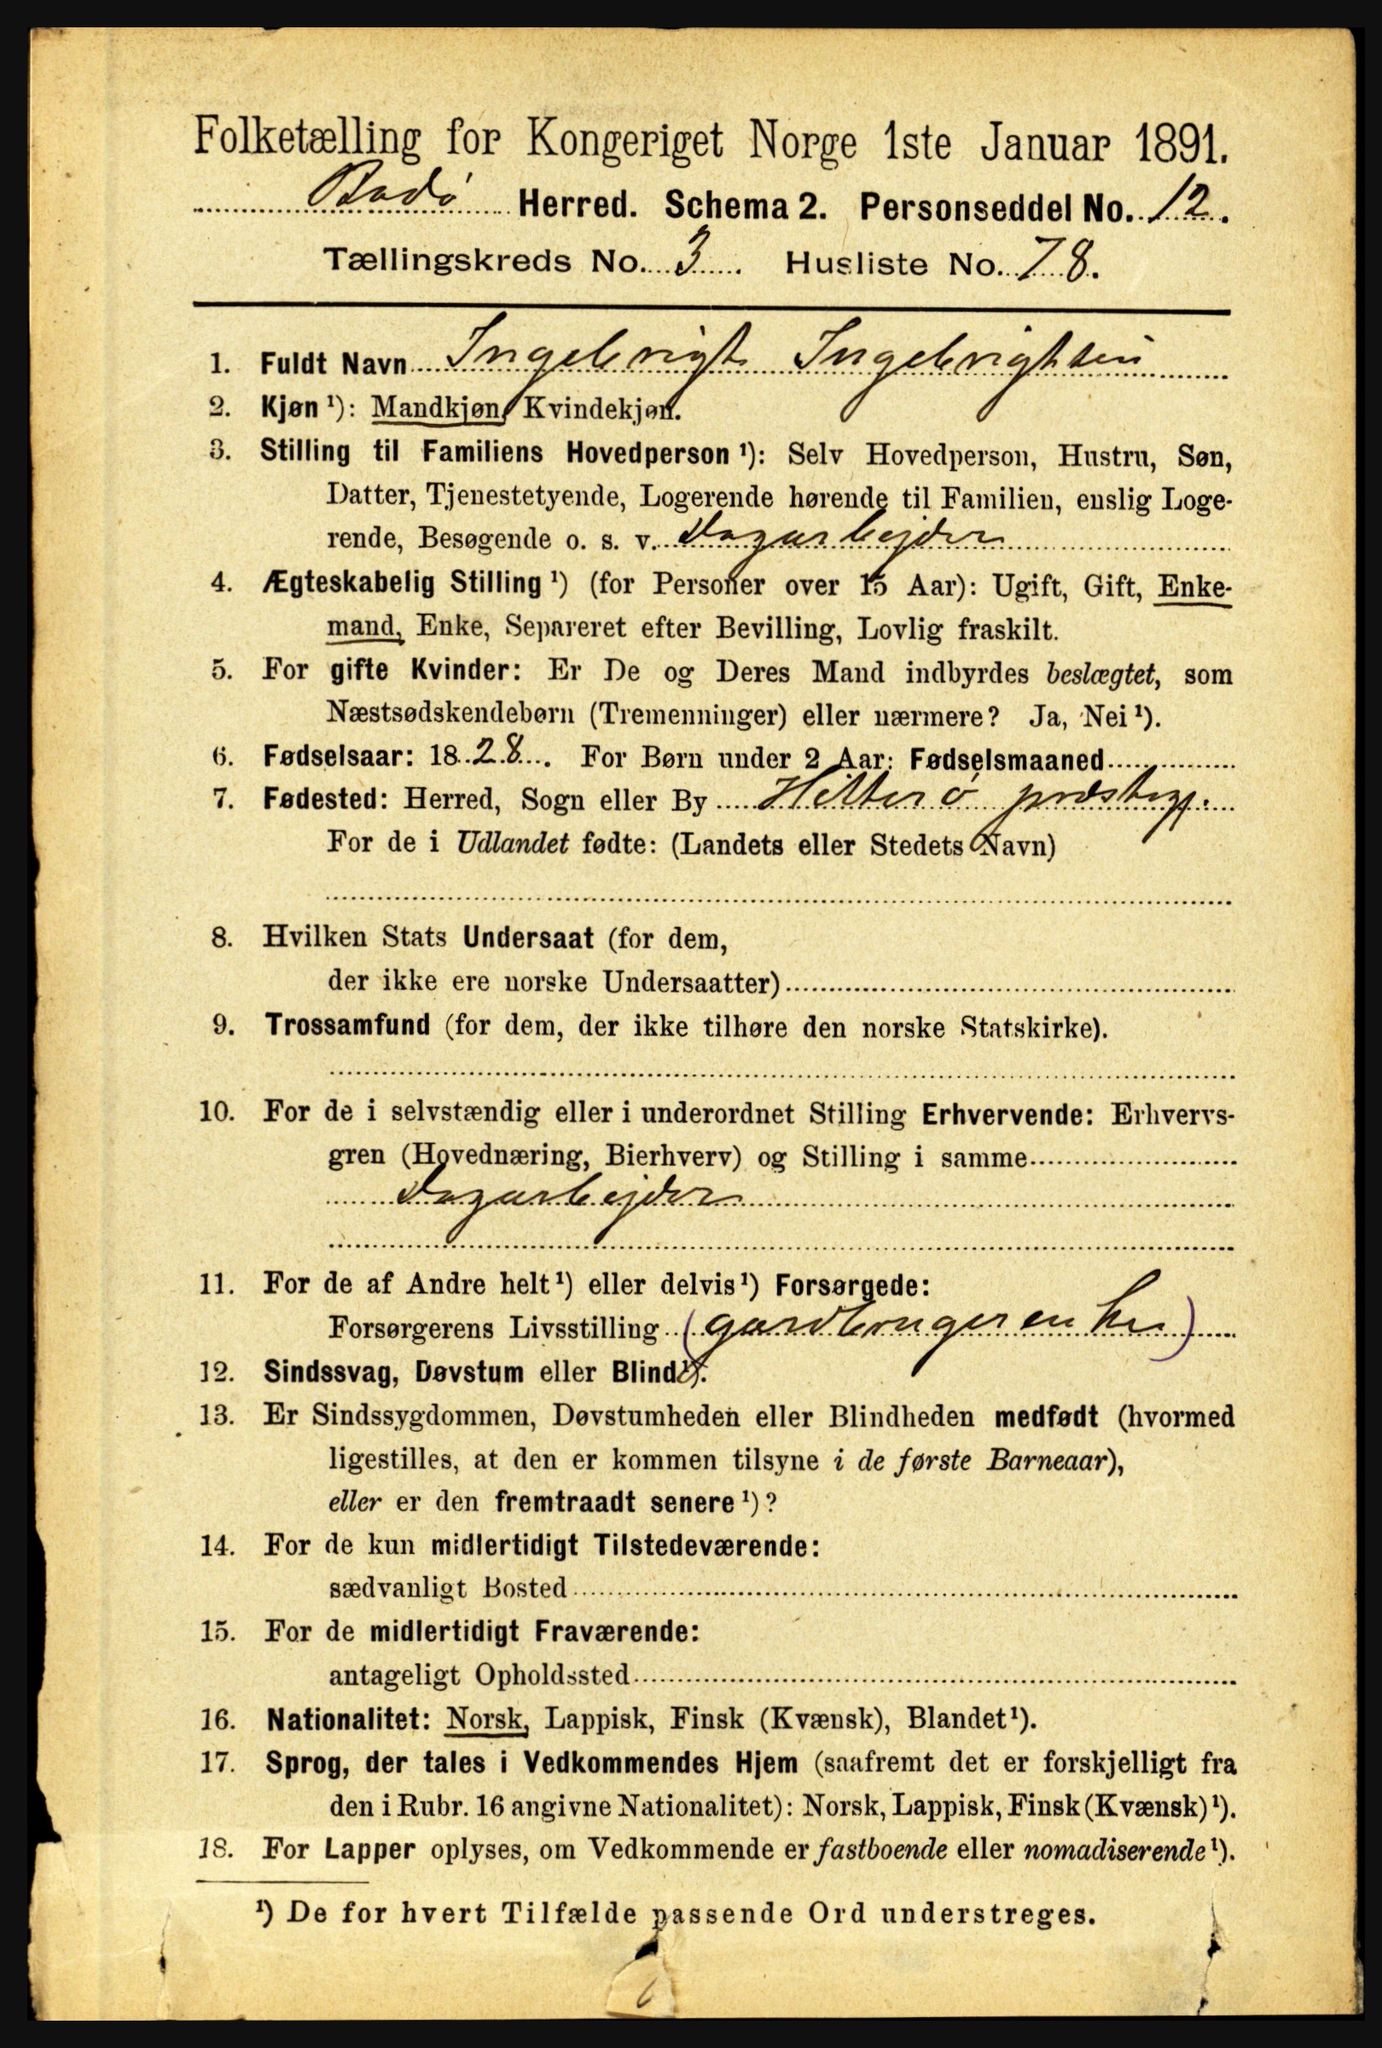 Folketælling for Kongeriget Norge 1ste Januar 1891.
Bodø Herred. Schema 2. Personseddel No. 12.
Tællingskreds No. 3. Husliste No. 78.
1. Fuldt Navn Ingebrigt Ingebrigtsen
2. Kjøn ¹): Mandkjøn, Kvindekjøn.
3. Stilling til Familiens Hovedperson ¹): Selv Hovedperson, Hustru, Søn,
Datter, Tjenestetyende, Logerende hørende til Familien, enslig Loge-
rende, Besøgende o. s. v. Dagarbejder
4. Ægteskabelig Stilling ¹) (for Personer over 15 Aar): Ugift, Gift, Enke-
mand, Enke, Separeret efter Bevilling, Lovlig fraskilt.
5. For gifte Kvinder: Er De og Deres Mand indbyrdes beslægtet, som
Næstsødskendebørn (Tremenninger) eller nærmere? Ja, Nei ¹).
6. Fødselsaar: 1828. For Børn under 2 Aar: Fødselsmaaned
7. Fødested: Herred, Sogn eller By Hitterø præstegj.
For de i Udlandet fødte: (Landets eller Stedets Navn)
8. Hvilken Stats Undersaat (for dem,
der ikke ere norske Undersaatter)
9. Trossamfund (for dem, der ikke tilhøre den norske Statskirke).
10. For de i selvstændig eller i underordnet Stilling Erhvervende: Erhvervs-
gren (Hovednæring, Bierhverv) og Stilling i samme
Dagarbejder
11. For de af Andre helt ¹) eller delvis ¹) Forsørgede:
Forsørgerens Livsstilling (gardbrugerenke)
12. Sindssvag, Døvstum eller Blind ¹).
13. Er Sindssygdommen, Døvstumheden eller Blindheden medfødt (hvormed
ligestilles, at den er kommen tilsyne i de første Barneaar),
eller er den fremtraadt senere ¹)?
14. For de kun midlertidigt Tilstedeværende:
sædvanligt Bosted
15. For de midlertidigt Fraværende:
antageligt Opholdssted
16. Nationalitet: Norsk, Lappisk, Finsk (Kvænsk), Blandet ¹).
17. Sprog, der tales i Vedkommendes Hjem (saafremt det er forskjelligt fra
den i Rubr. 16 angivne Nationalitet): Norsk, Lappisk, Finsk (Kvænsk) ¹).
18. For Lapper oplyses, om Vedkommende er fastboende eller nomadiserende ¹).
¹) De for hvert Tilfælde passende Ord understreges.